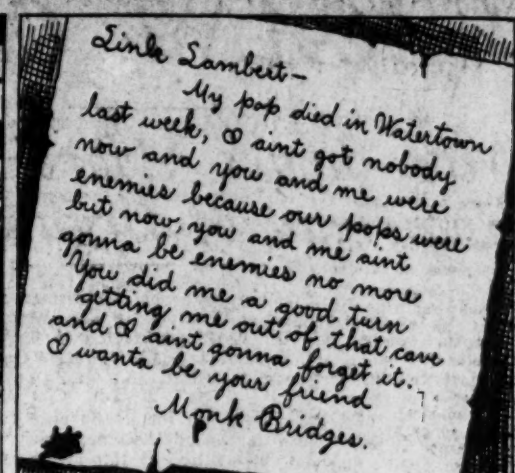 Link Lambert—
My pop died in Watertown
last week, I aint got nobody
now and you and me were
enemies because our pops were
but now, you and me aint
gonna be enemies no more
You did me a good turn
getting me out of that cave
and I aint gonna forget it.
I wanta be your friend
Monk Bridges.